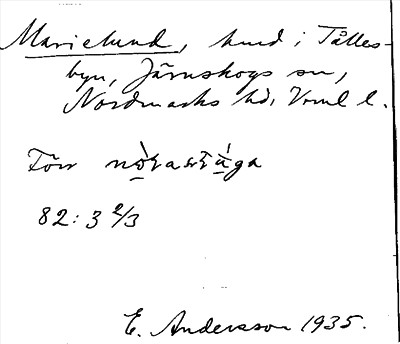 Marielund, hmd i Tålles-
byn, Järnskogs sn,
Nordmarks hd, Vrml l.
Förr
82: 3 2/3
E. Andersson 1935.